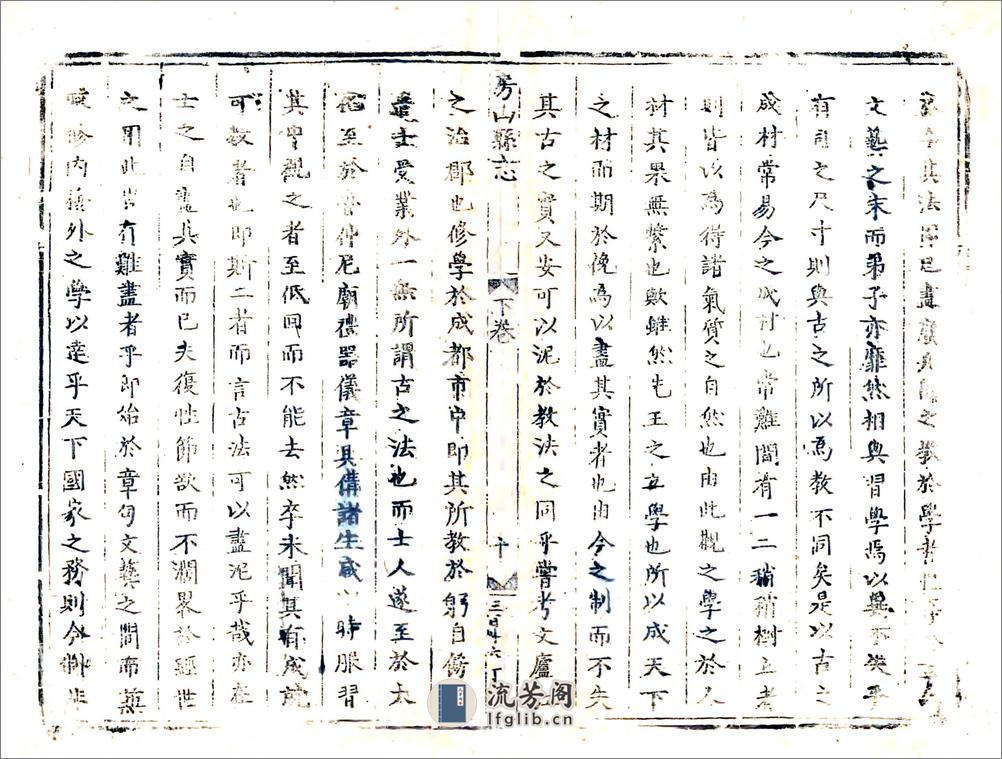 其法
之教於學者
文藝之末而弟子亦靡然相與習學焉以異不
有司之尺寸則與古之所以為教不同矣是以古之
成材常易今之成材也常難間有一二稍稍樹立者
則皆以為得諸氣質之自然也由此觀之學之於人
材其果無繫也歟雖然先王之立學也所以成天下
之材而期於俛焉以盡其實者也由今之制而不失
其古之實又安可以泥於教法之同乎嘗考文
之治郡也修學於成都市中即其所教於躬自
遣士受業外一無所謂古之法也而士人遂至於
至於 仲尼廟禮器儀章具備諸生咸以時服習
其中觀之者至低回而不能去然卒未聞其有成就
可教者也即斯二者而言古法可以盡泥乎哉亦在
士之自盡其實而已夫復性節欲而不濶畧於經世
之用此豈有難盡者乎即始於章句文藝之間而
修內 外之學以達乎天下國家之務則今
房山縣志
下卷
十
流芳阁
lfglib.cn